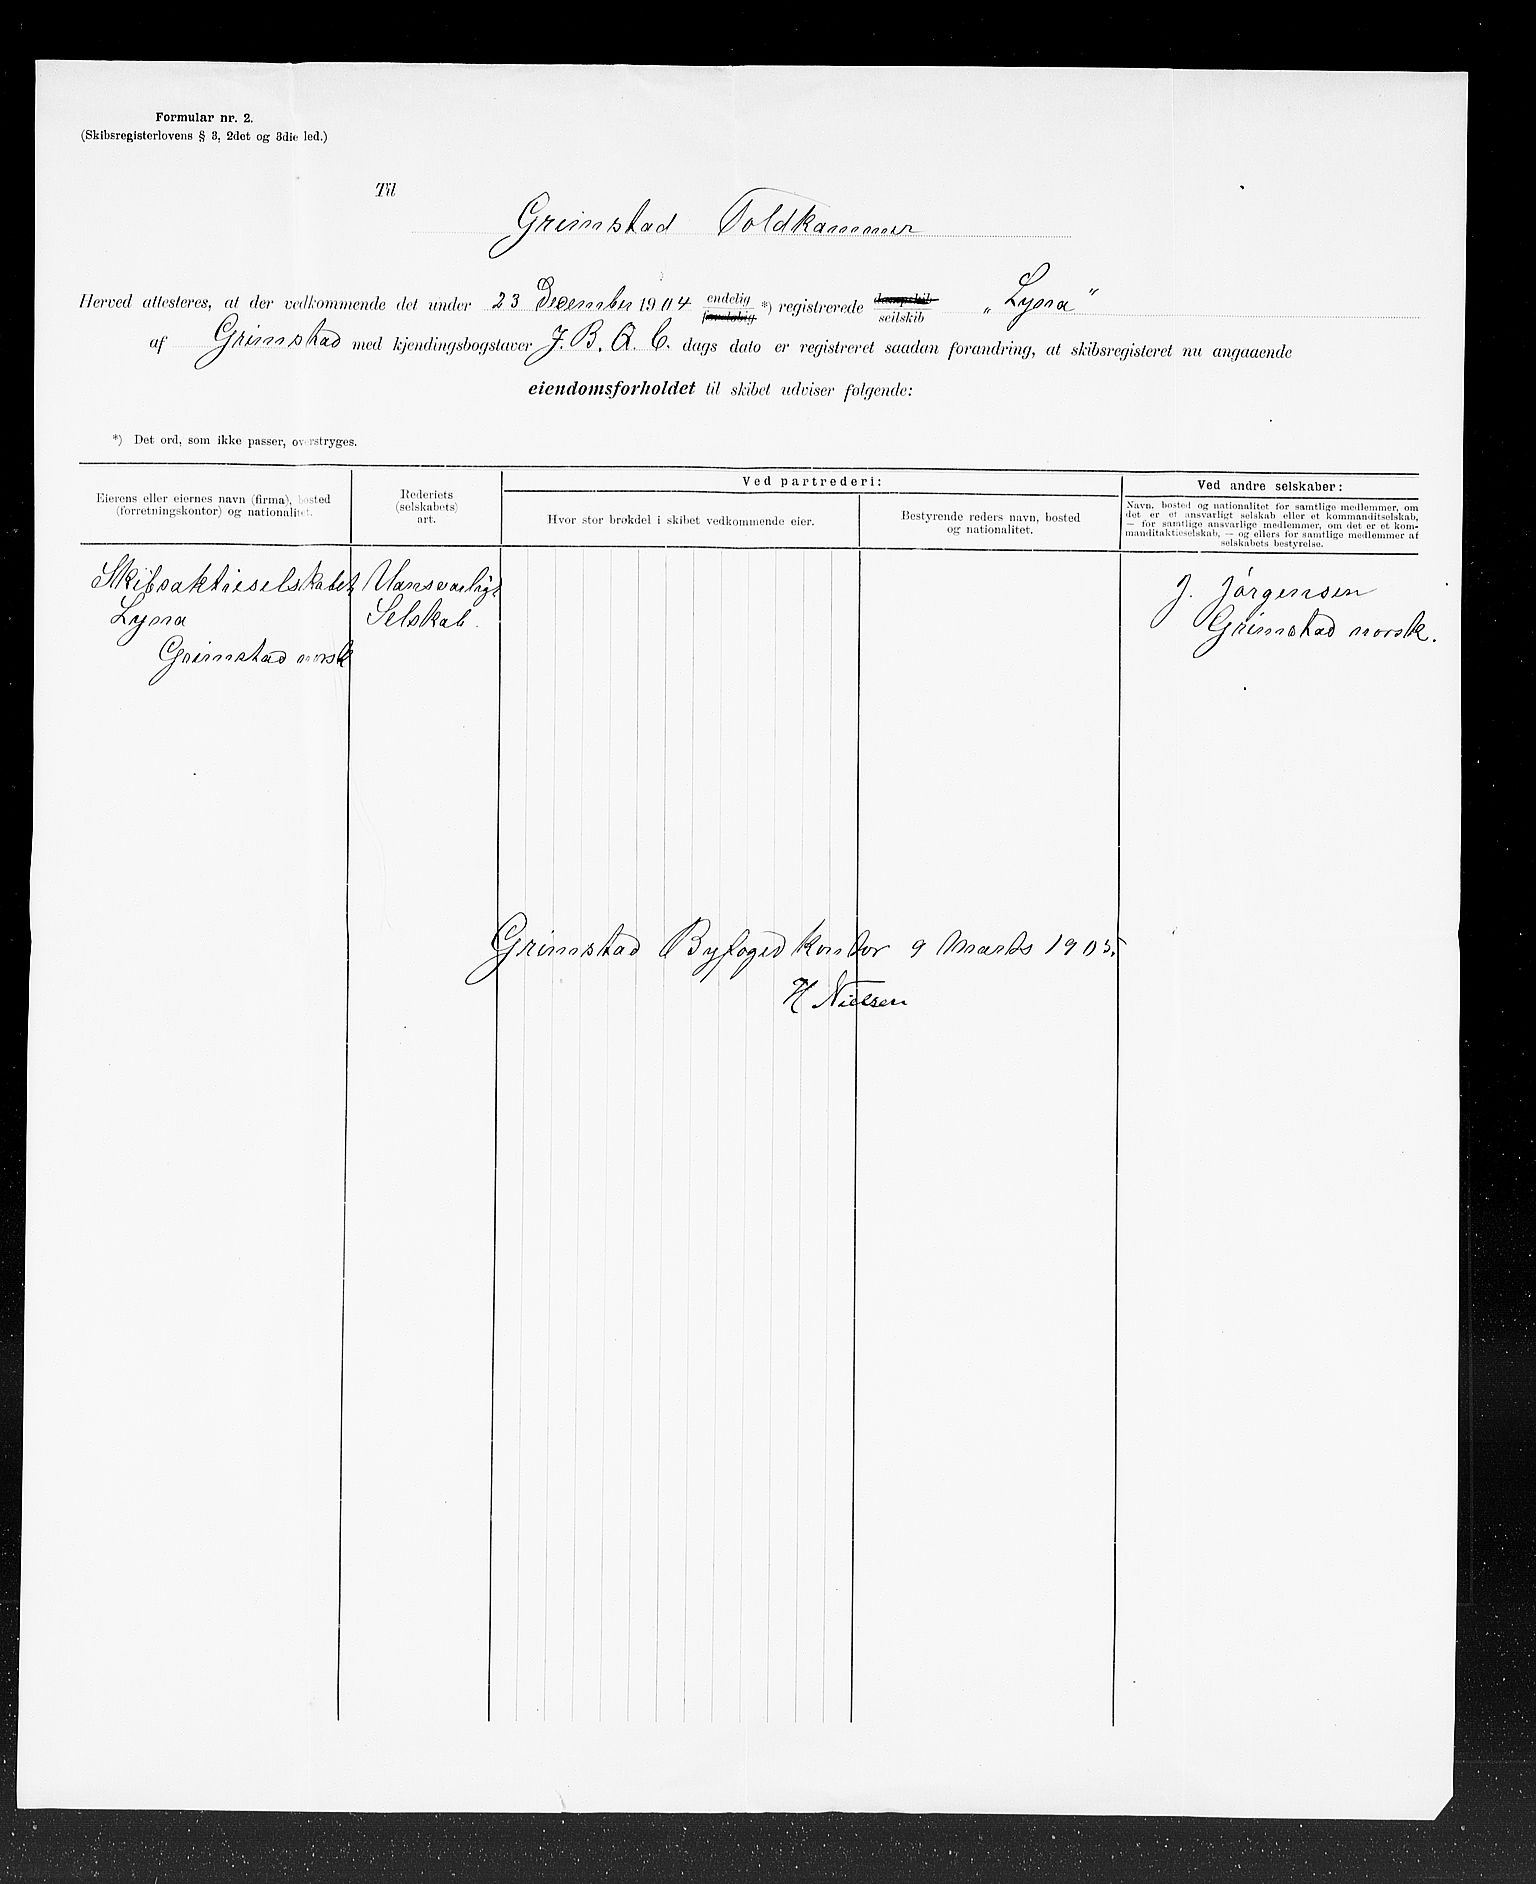 Formular nr. 2.
(Skibsregisterlovens § 3, 2det og 3die led.)
Til
Grimstad Toldkammer
Herved attesteres, at der vedkommende det under 23 December 1904 endelig foreløbig *) registrerede dampskib seilskib „Lyna“
af Grimstad med kjendingsbogstaver J. B. Q. C. dags dato er registreret saadan forandring, at skibsregisteret nu angaaende
eiendomsforholdet til skibet udviser følgende:
*) Det ord, som ikke passer, overstryges.
Eierens eller eiernes navn (firma), bosted
(forretningskontor) og nationalitet.
Rederiets
(selskabets)
art.
Ved partrederi:
Hvor stor brøkdel i skibet vedkommende eier.
Bestyrende reders navn, bosted
og nationalitet.
Ved andre selskaber:
Navn, bosted og nationalitet for samtlige medlemmer, om
det er et ansvarligt selskab eller et kommanditselskab,
— for samtlige ansvarlige medlemmer, om det er et kom-
manditaktieselskab, — og ellers for samtlige medlemmer af
selskabets bestyrelse.
Skibsaktieselskabet
Lyna
Grimstad norsk
Uansvarligt
Selskab.
J. Jørgensen
Grimstad norsk.
Grimstad Byfogedkontor 9 Marts 1905.
H Nielsen